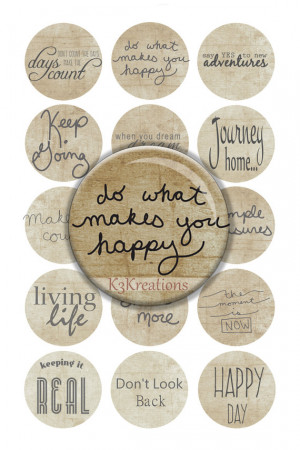 DON'T COUNT THE DAYS
days MAKE THE
count
do what
makes you
happy
say YES to new
adventures
Keep
Going
when you dream
Journey
home...
do what
makes you
happy
K3Kreations
living
life
more
the
moment
is
NOW
keeping it
REAL
Don't Look
Back
HAPPY
DAY